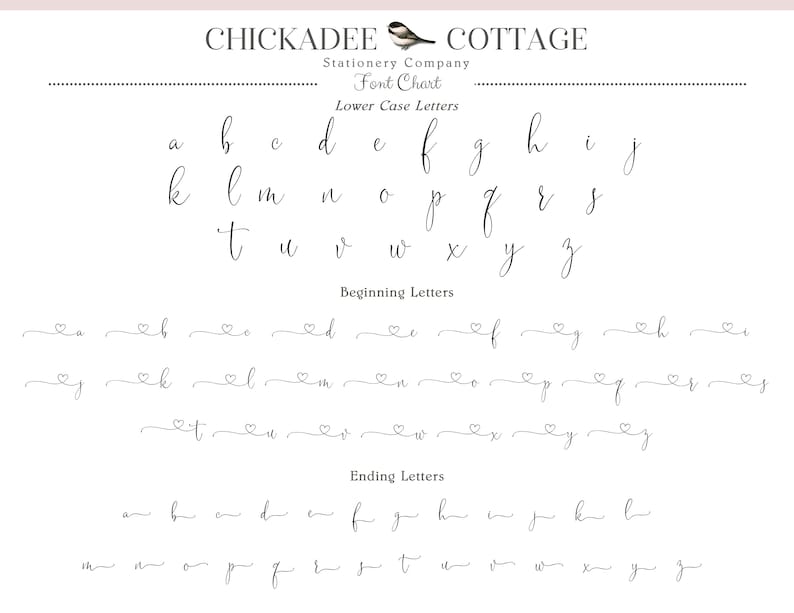 CHICKADEE COTTAGE
Stationery Company
Font Chart
Lower Case Letters
a b c d e f g h i j
k l m n o p q r s
t u v w x y z
Beginning Letters
a b c d e f g h i
j k l m n o p q r s
t u v w x y z
Ending Letters
a b c d e f g h i j k l
m n o p q r s t u v w x y z